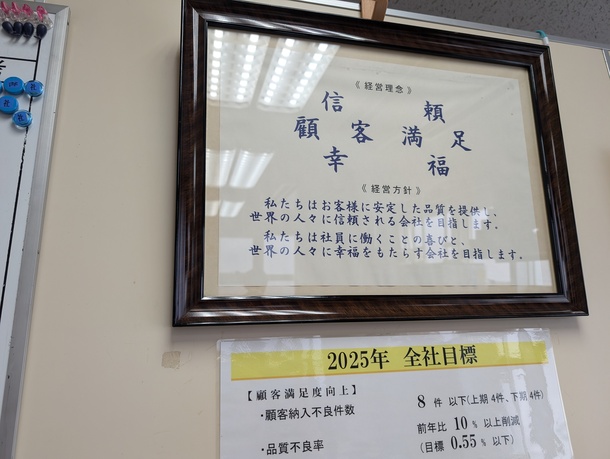 《 経営理念 》
信 頼
顧 客 満 足
幸 福
《 経営方針 》
私たちはお客様に安定した品質を提供し、
世界の人々に信頼される会社を目指します。
私たちは社員に働くことの喜びと、
世界の人々に幸福をもたらす会社を目指します。
2025年 全社目標
【顧客満足度向上】
・顧客納入不良件数 8 件 以下(上期 4件、下期 4件)
前年比 10 % 以上削減
・品質不良率 (目標 0.55 % 以下)